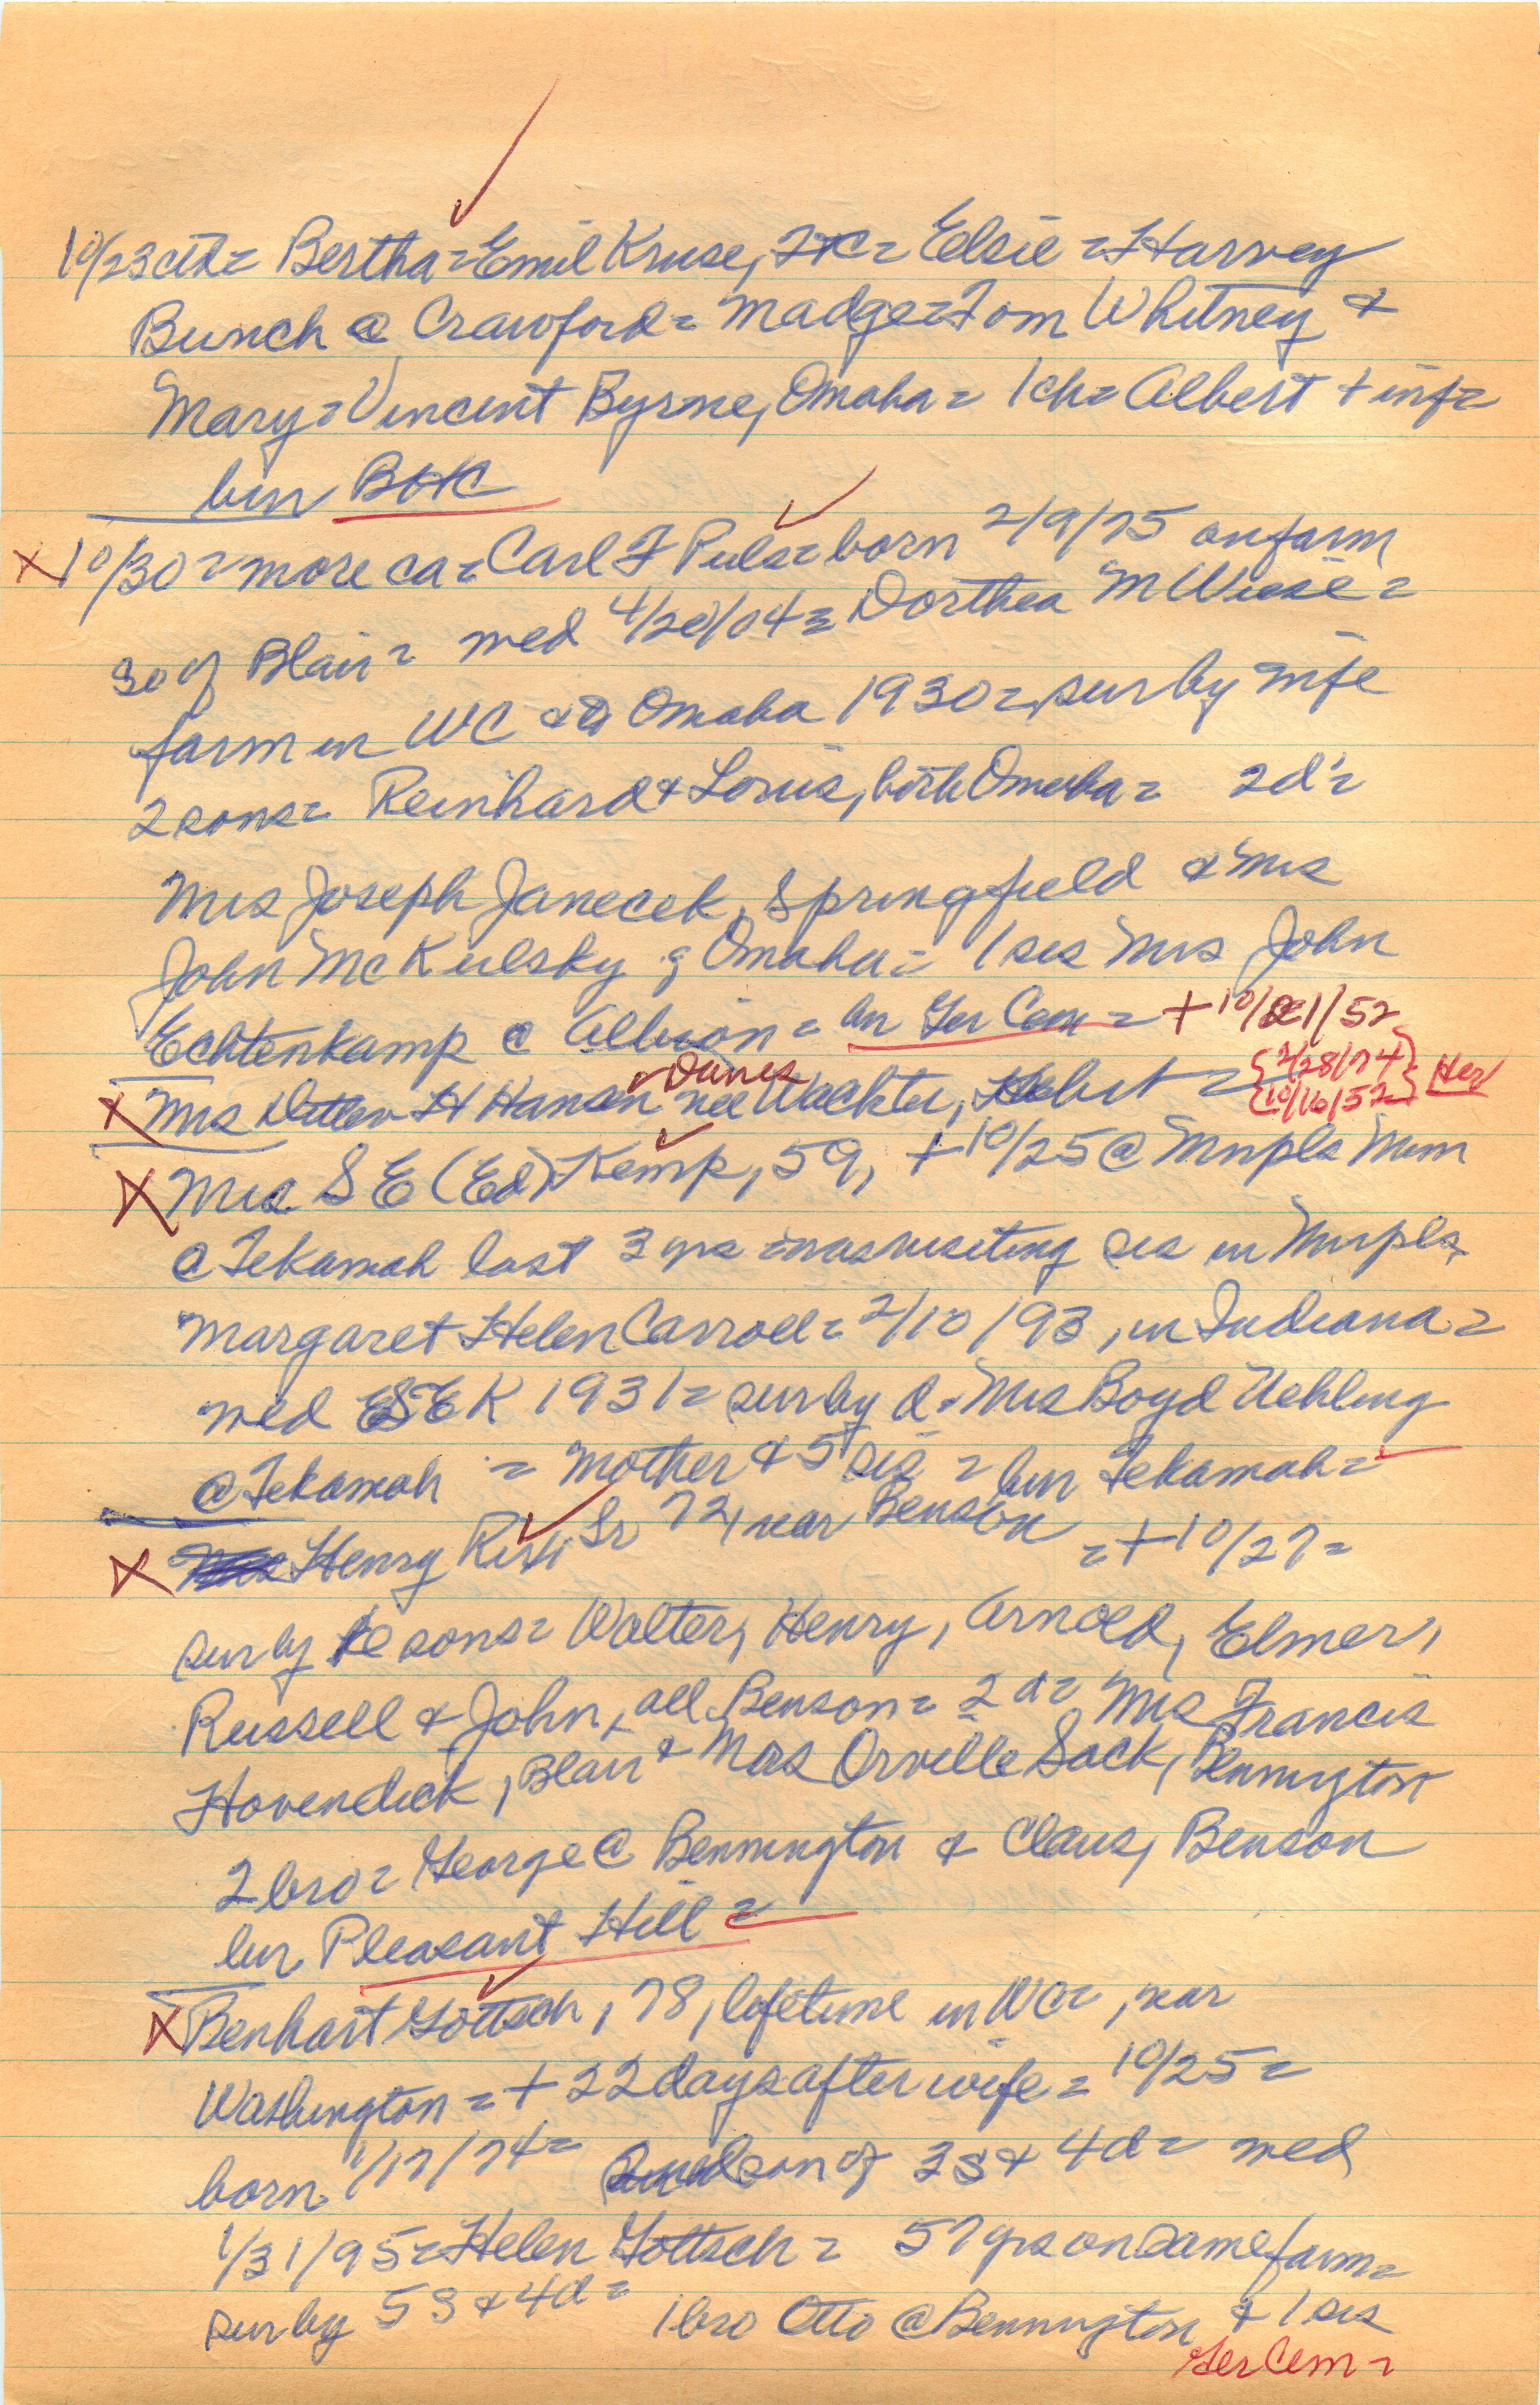 10/23 ctd = Bertha = Emil Kruse, = Elsie = Harvey
Bunch @ Crawford = Madge = Tom Whitney &
Mary = Vincent Byrne, Omaha = 1 ch = Albert + inf =
bur
10/30 = more ca = Carl F Puls = born 2/9/75 on farm
so of Blair = med 4/20/04 = Dorthea M Wiese =
farm in WC & @ Omaha 1930 = sur by wife
2 sons = Reinhard & Louis, both Omaha = 2 d's
Mrs Joseph Janecek, Springfield & Mrs
John McKulsky of Omaha = 1 sis Mrs John
Echtenkamp @ Albion = bur Ger Cem = + 10/21/52
Mrs Detlev H Hansen nee Wachter, = {2/28/74 Her
Dunes
10/16/52}
Mrs. S E (Ed) Kemp, 59, + 10/25 @ Mnpls Minn
@ Tekamah last 3 yrs = was visiting sis in Mnpls,
Margaret Helen Carroll = 2/10/93, in Indiana =
med SEK 1931 = sur by d = Mrs Boyd Uehling
@ Tekamah = mother & 5 sis = bur Tekamah =
Henry Sr 72, near Benson = + 10/27 =
sur by sons = Walter, Henry, Arnold, Elmer,
Russell & John, all Benson = 2 d = Mrs Francis
Hovendick, Blair & Mrs Orville Sack, Bennington
2 bro = George @ Bennington & Claus, Benson
bur Pleasant Hill =
Benhart Gottsch, 78, lifetime in WC =, near
Washington = + 22 days after wife = 10/25 =
born 1/17/74 = son of 3s & 4d = med
1/31/95 = Helen Gottsch = 57 yrs on same farm =
sur by 5s & 4d = 1 bro Otto @ Bennington & 1 sis
Ger Cem =